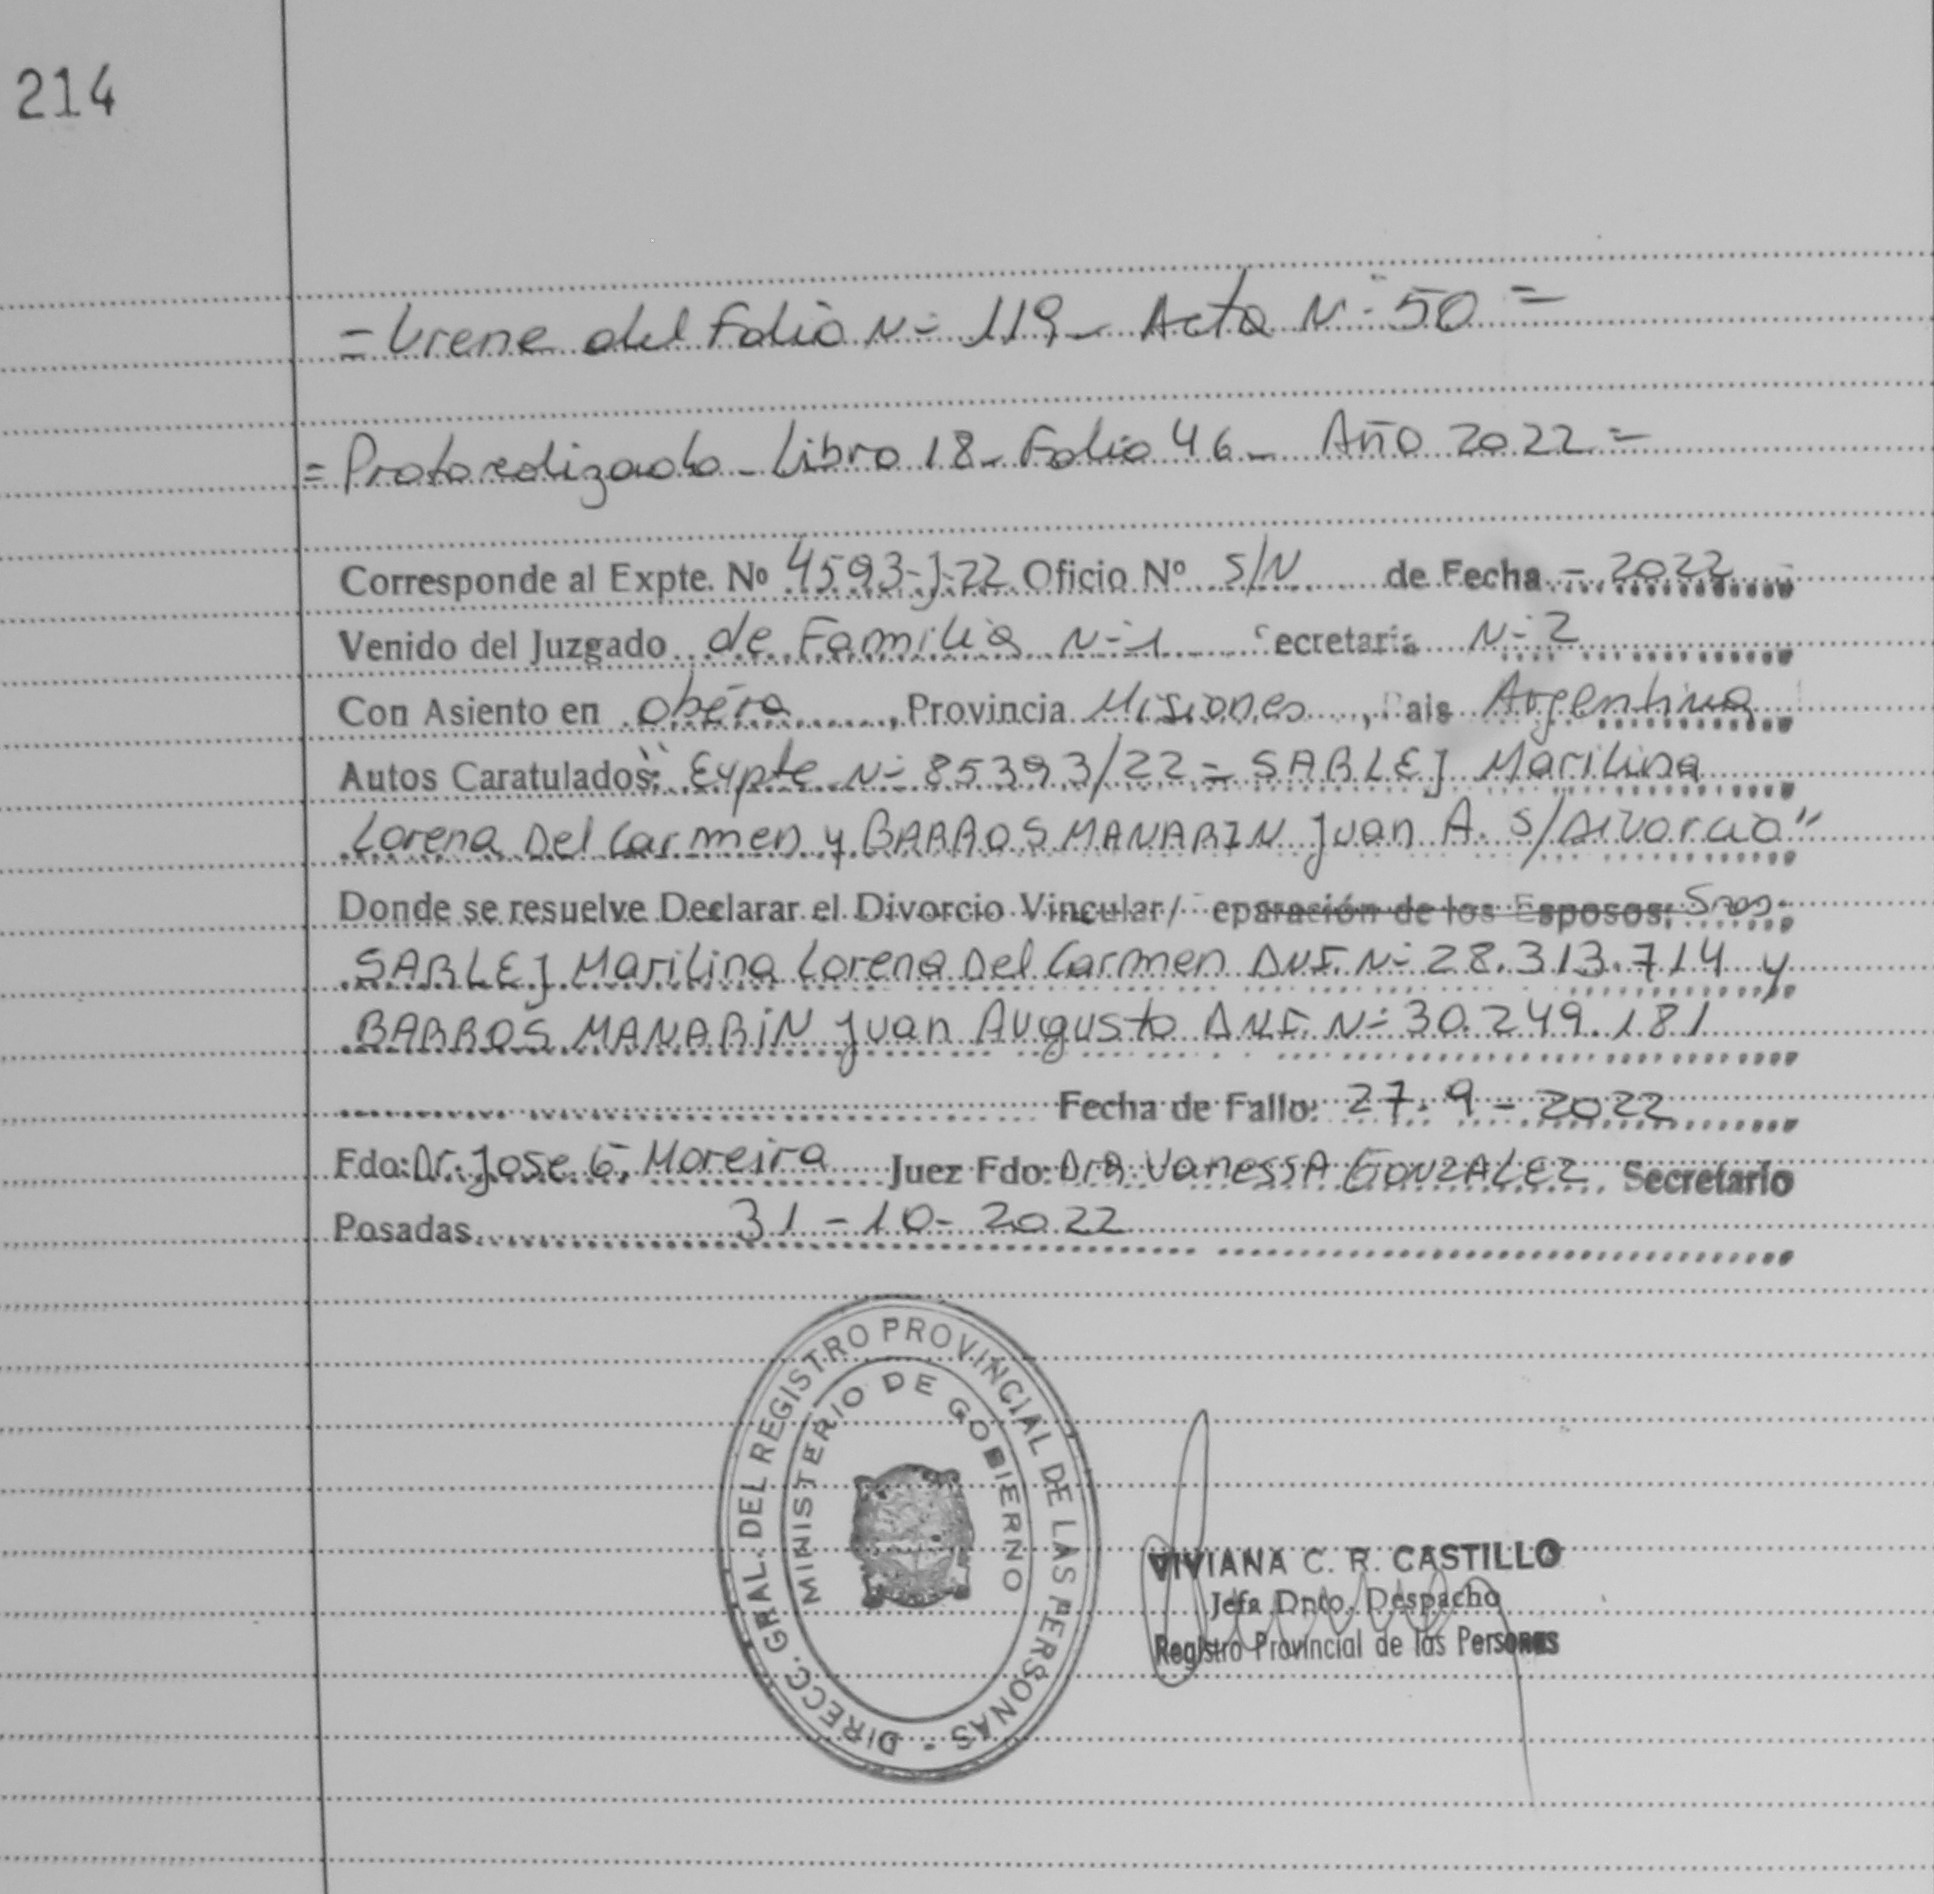 214
= Viene del Folio N= 119 - Acta N= 50 =
= Protocolizado - Libro 18 - Folio 46 - Año 2022 =
Corresponde al Expte. Nº 4593-J-22 Oficio Nº S/N de Fecha - 2022
Venido del Juzgado de Familia N=1 Secretaría N=2
Con Asiento en Oberá, Provincia Misiones, Pais Argentina
Autos Caratulados: "Expte N= 85393/22 = SABLEJ Marilina
Lorena Del Carmen y BARROS MANARIN Juan A. S/Divorcio"
Donde se resuelve Declarar el Divorcio Vincular/ Separación de los Esposos: Sres.
SABLEJ Marilina Lorena Del Carmen DNI. N= 28.313.714 y
BARROS MANARIN Juan Augusto DNI. N= 30.249.181
Fecha de Fallo: 27-9-2022
Fdo: Dr. Jose G. Moreira Juez Fdo: Dra Vanessa GONZALEZ Secretario
Posadas 31-10-2022
DIRECC. GRAL. DEL REGISTRO PROVINCIAL DE LAS PERSONAS -
MINISTERIO DE GOBIERNO
VIVIANA C. R. CASTILLO
Jefa Dpto. Despacho
Registro Provincial de las Personas